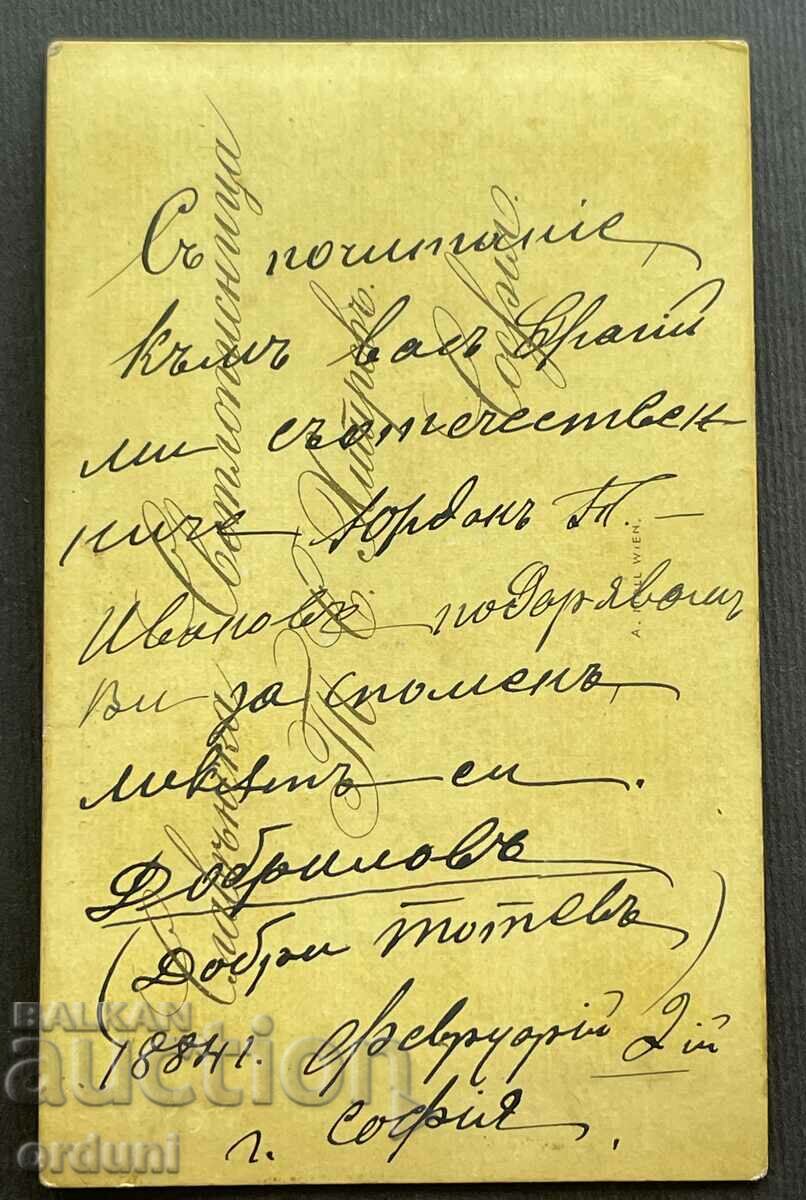 Съ почитание
къмъ васъ драгий
ми съотечествен
ниче Юрданъ Т–
Ивановъ подарявамъ
ви за споменъ
ликътъ си.
Добриловъ
(Добри Тотевъ)
1884 г. Февруарий 2ий
г. София.
Славянска Светлописница
Т. Хитровъ.
София.
WIEN.
BALKAN
auction
orduni